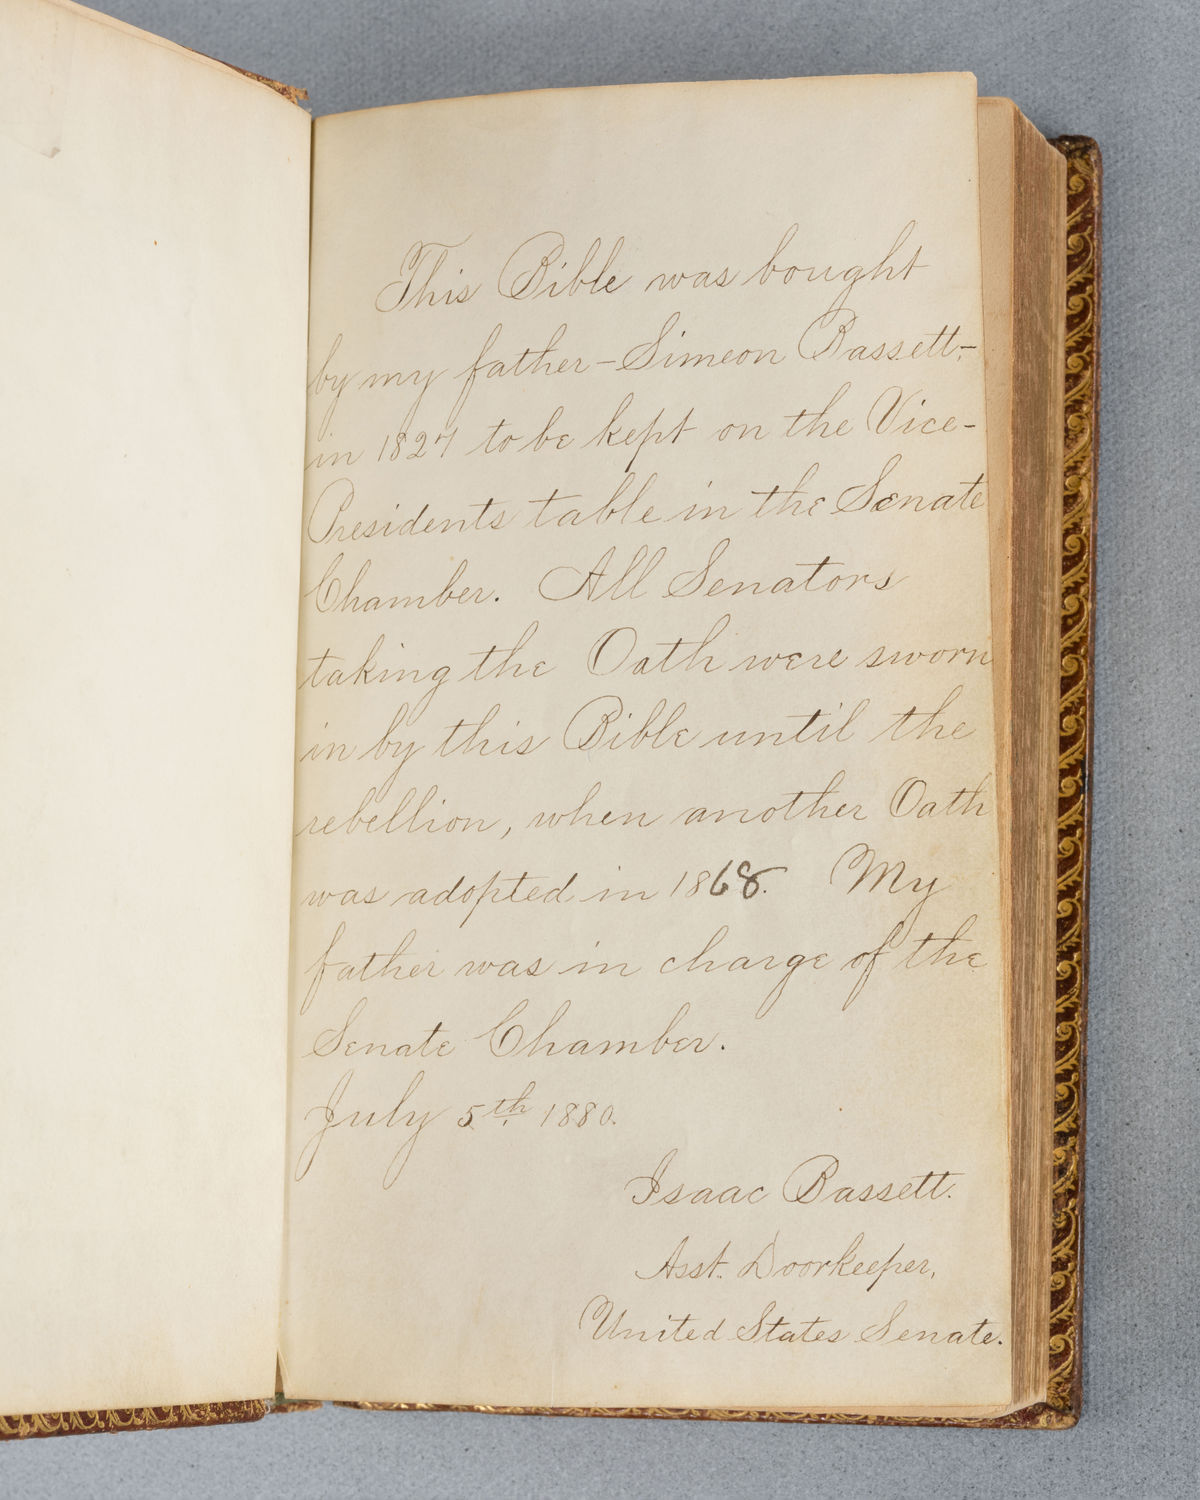 This Bible was bought
by my father – Simeon Bassett –
in 1827 to be kept on the Vice-
Presidents table in the Senate
Chamber. All Senators
taking the Oath were sworn
in by this Bible until the
rebellion, when another Oath
was adopted in 1868. My
father was in charge of the
Senate Chamber.
July 5th 1880.
Isaac Bassett.
Asst. Doorkeeper,
United States Senate.